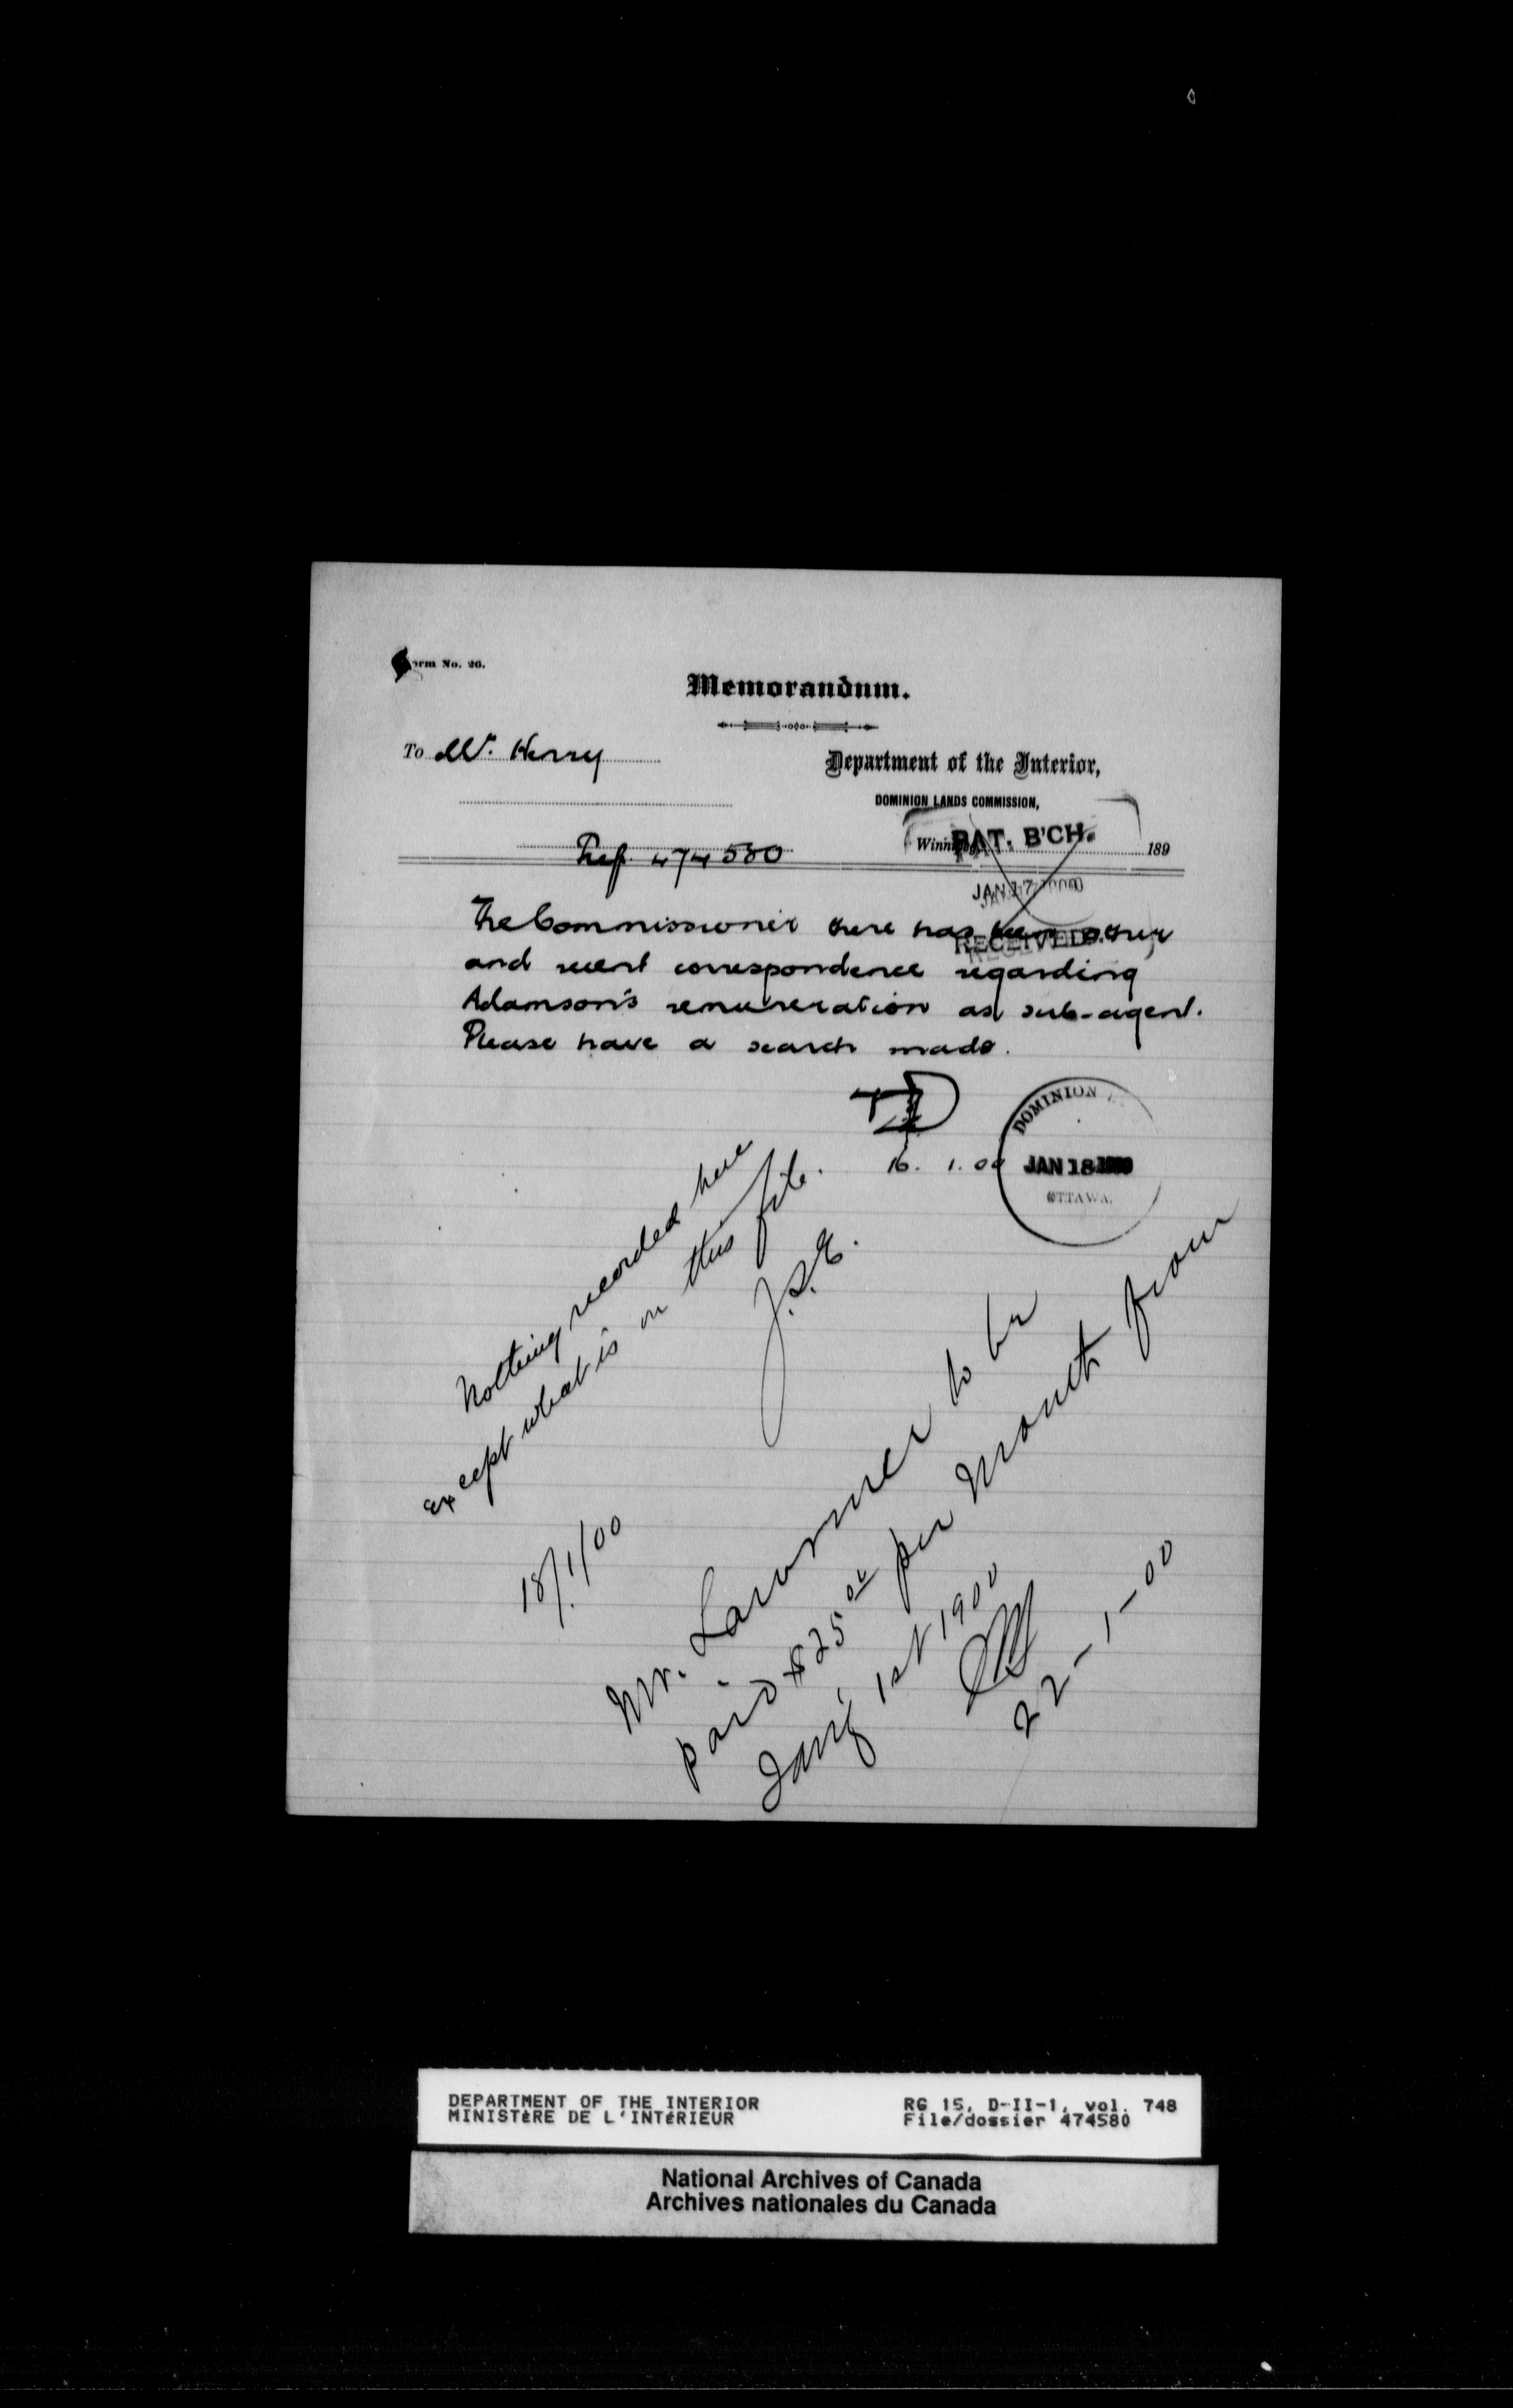 Form No. 26.
Memorandum.
To Mr. Henry
Department of the Interior,
DOMINION LANDS COMMISSION,
Winnipeg, 189
PAT. B'CH.
JAN 17 1900
RECEIVED
Ref. 474580
The Commissioner there has been other
and recent correspondence regarding
Adamson's remuneration as sub-agent.
Please have a search made.
16. 1. 00
DOMINION
JAN 18 1900
OTTAWA.
Nothing recorded here
except what is on this file.
18/1/00
Mr. to be
paid $25 00 per month from
Jany 1st 1900
22-1-00
DEPARTMENT OF THE INTERIOR
MINISTÈRE DE L'INTÉRIEUR
RG 15, D-II-1, vol. 748
File/dossier 474580
National Archives of Canada
Archives nationales du Canada